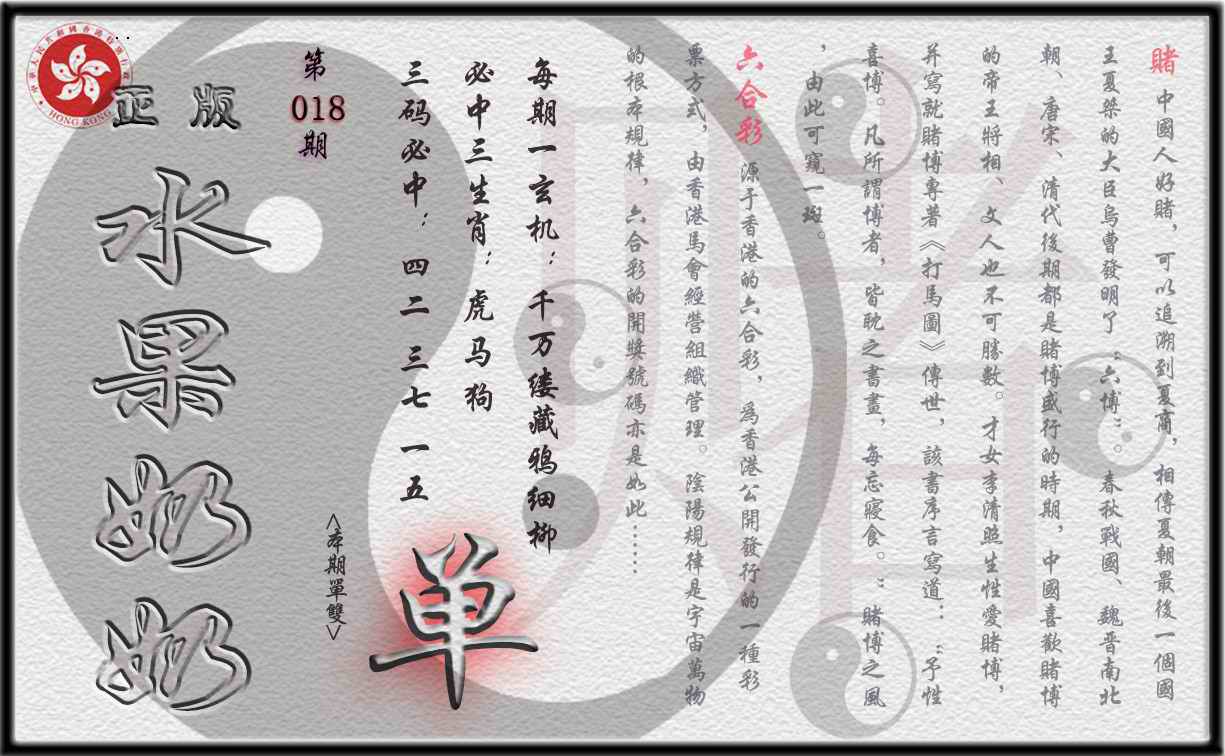 賭 中國人好賭，可以追溯到夏商，相傳夏朝最後一個國
王夏桀的大臣烏曹發明了“六博”。春秋戰國、魏晋南北
朝、唐宋、清代後期都是賭博盛行的時期，中國喜歡賭博
的帝王將相、文人也不可勝數。才女李清照生性愛賭博，
并寫就賭博專著《打馬圖》傳世，該書序言寫道：“予性
喜博。凡所謂博者，皆耽之書畫，每忘寢食。”賭博之風
，由此可窺一斑。
六合彩 源于香港的六合彩，爲香港公開發行的一種彩
票方式，由香港馬會經營組織管理。陰陽規律是宇宙萬物
的根本規律，六合彩的開獎號碼亦是如此……
每期一玄机：千万缕藏鸦细柳
必中三生肖：虎马狗
三码必中：四二 三七 一五
<本期單雙>
单
第
018
期
正版
水果奶奶
中華人民共和國香港特別行政區
HONG KONG